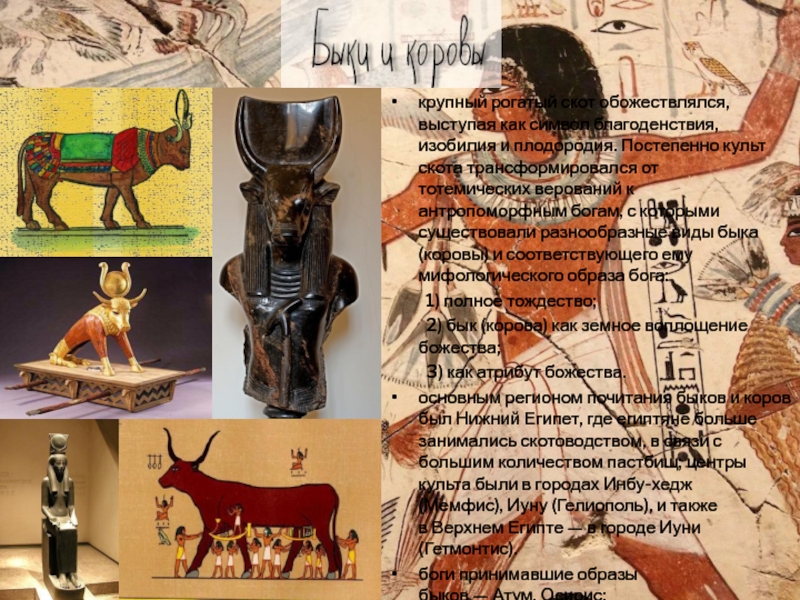 Быки и коровы
• крупный рогатый скот обожествлялся,
выступая как символ благоденствия,
изобилия и плодородия. Постепенно культ
скота трансформировался от
тотемических верований к
антропоморфным богам, с которыми
существовали разнообразные виды быка
(коровы) и соответствующего ему
мифологического образа бога:
1) полное тождество;
2) бык (корова) как земное воплощение
божества;
3) как атрибут божества.
• основным регионом почитания быков и коров
был Нижний Египет, где египтяне больше
занимались скотоводством, в связи с
большим количеством пастбищ; центры
культа были в городах Инбу-хедж
(Мемфис), Иуну (Гелиополь), и также
в Верхнем Египте — в городе Иуни
(Гетмонтис).
• боги принимавшие образы
быков — Атум, Осирис;